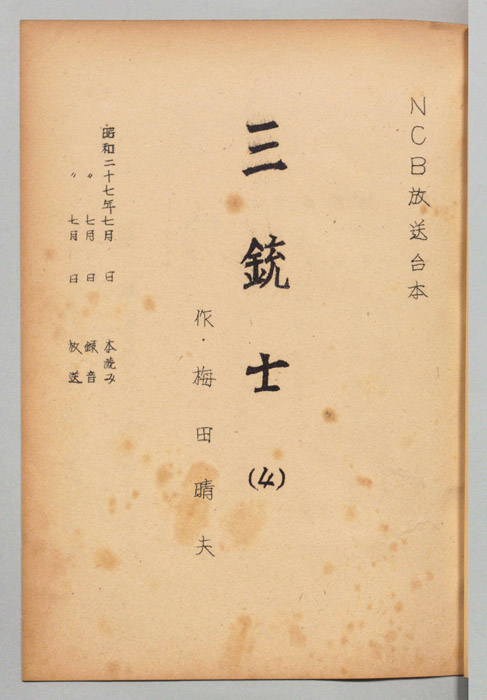 NCB放送台本
三銃士(4)
作・梅田晴夫
昭和二十七年七月 日 本読み
〃 七月 日 録音
〃 七月 日 放送